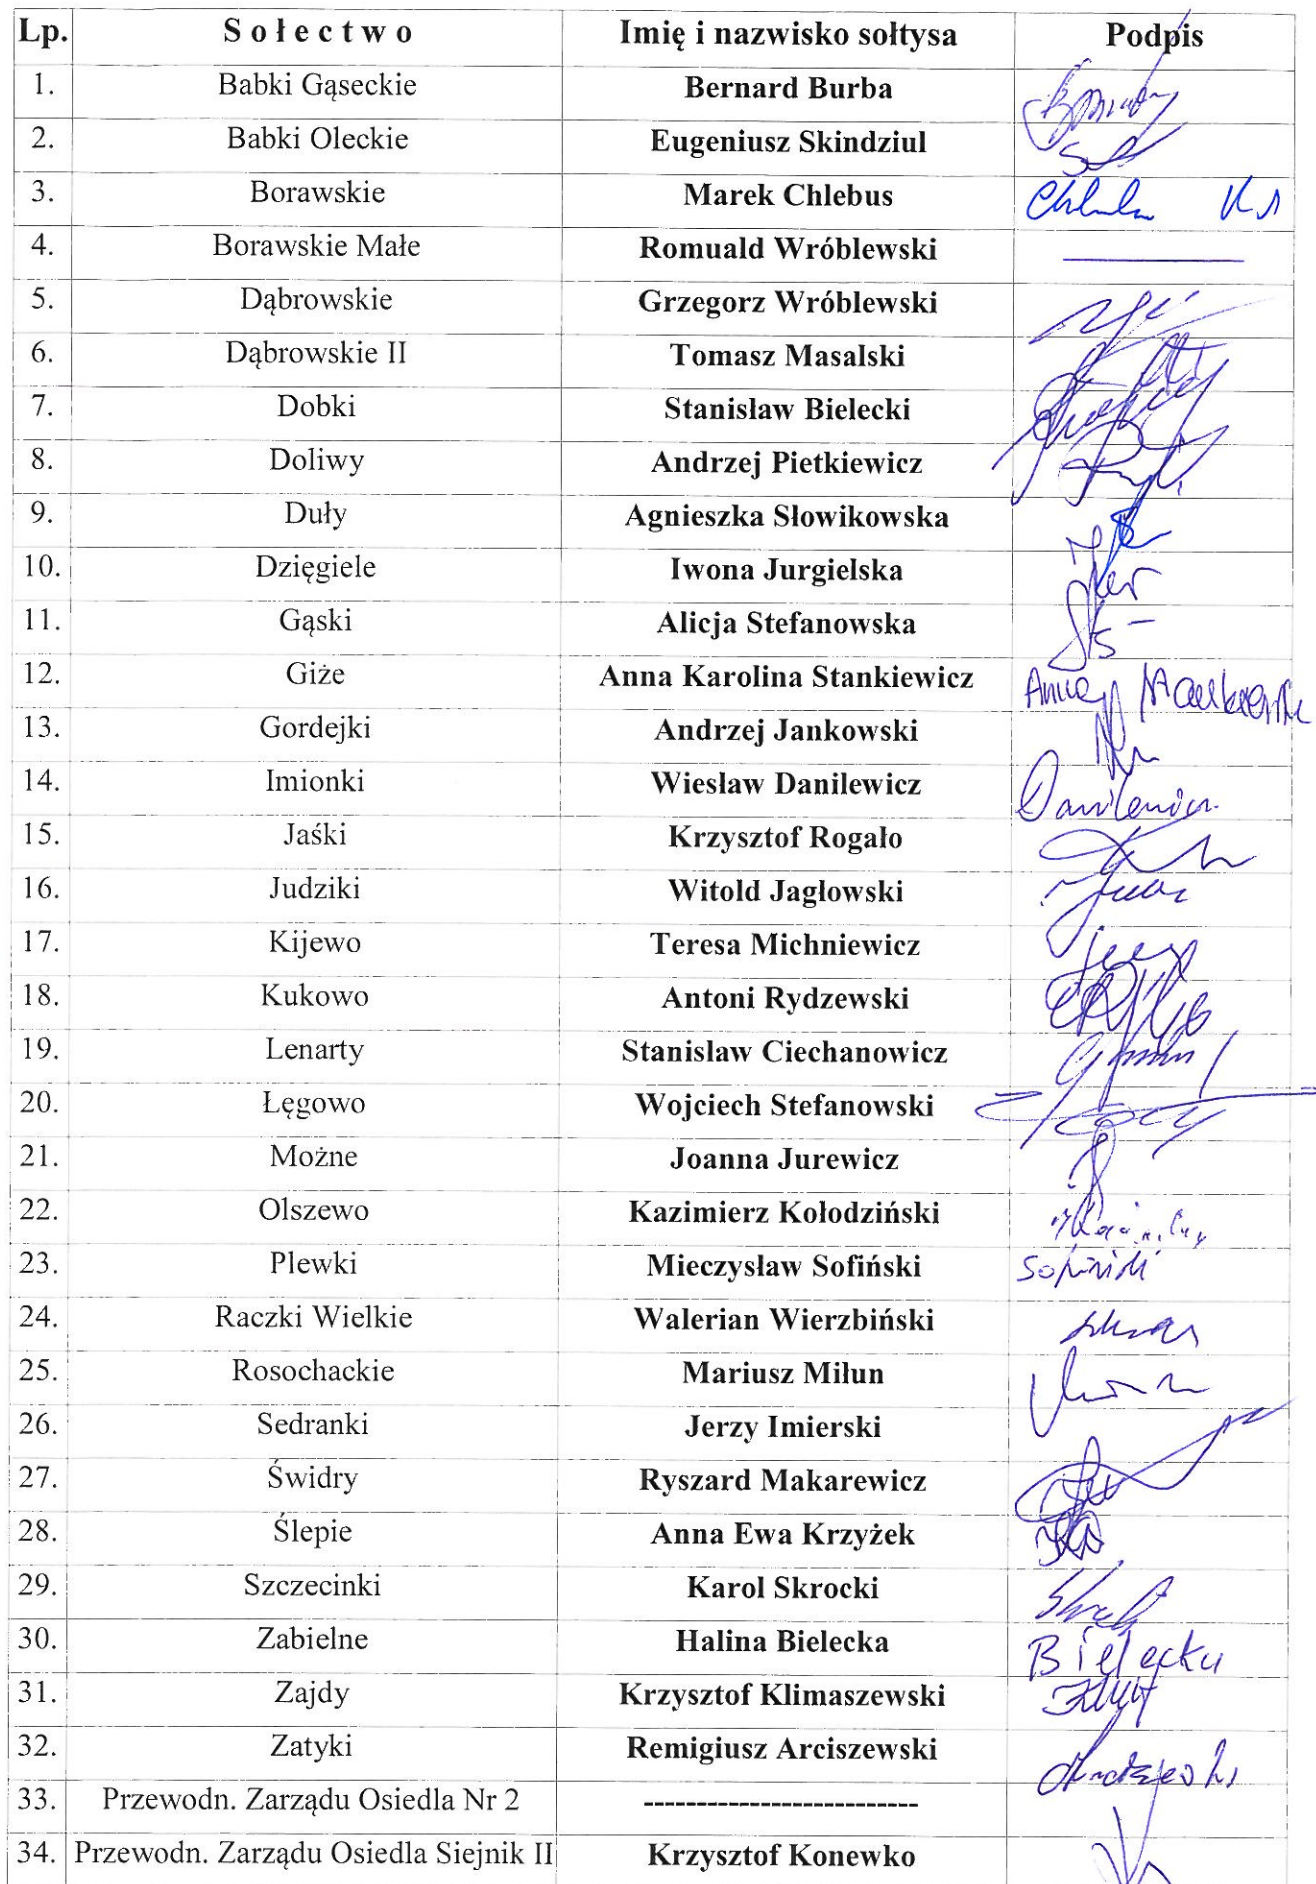 Lp. Sołectwo Imię i nazwisko sołtysa Podpis
1. Babki Gąseckie Bernard Burba
2. Babki Oleckie Eugeniusz Skindziul
3. Borawskie Marek Chlebus
4. Borawskie Małe Romuald Wróblewski
5. Dąbrowskie Grzegorz Wróblewski
6. Dąbrowskie II Tomasz Masalski
7. Dobki Stanisław Bielecki
8. Doliwy Andrzej Pietkiewicz
9. Duły Agnieszka Słowikowska
10. Dzięgiele Iwona Jurgielska
11. Gąski Alicja Stefanowska
12. Giże Anna Karolina Stankiewicz
13. Gordejki Andrzej Jankowski
14. Imionki Wiesław Danilewicz
15. Jaśki Krzysztof Rogało
16. Judziki Witold Jagłowski
17. Kijewo Teresa Michniewicz
18. Kukowo Antoni Rydzewski
19. Lenarty Stanisław Ciechanowicz
20. Łęgowo Wojciech Stefanowski
21. Możne Joanna Jurewicz
22. Olszewo Kazimierz Kołodziński
23. Plewki Mieczysław Sofiński
24. Raczki Wielkie Walerian Wierzbiński
25. Rosochackie Mariusz Miłun
26. Sedranki Jerzy Imierski
27. Świdry Ryszard Makarewicz
28. Ślepie Anna Ewa Krzyżek
29. Szczecinki Karol Skrocki
30. Zabielne Halina Bielecka Bielecka
31. Zajdy Krzysztof Klimaszewski
32. Zatyki Remigiusz Arciszewski
33. Przewodn. Zarządu Osiedla Nr 2 --------------------------
34. Przewodn. Zarządu Osiedla Siejnik II Krzysztof Konewko